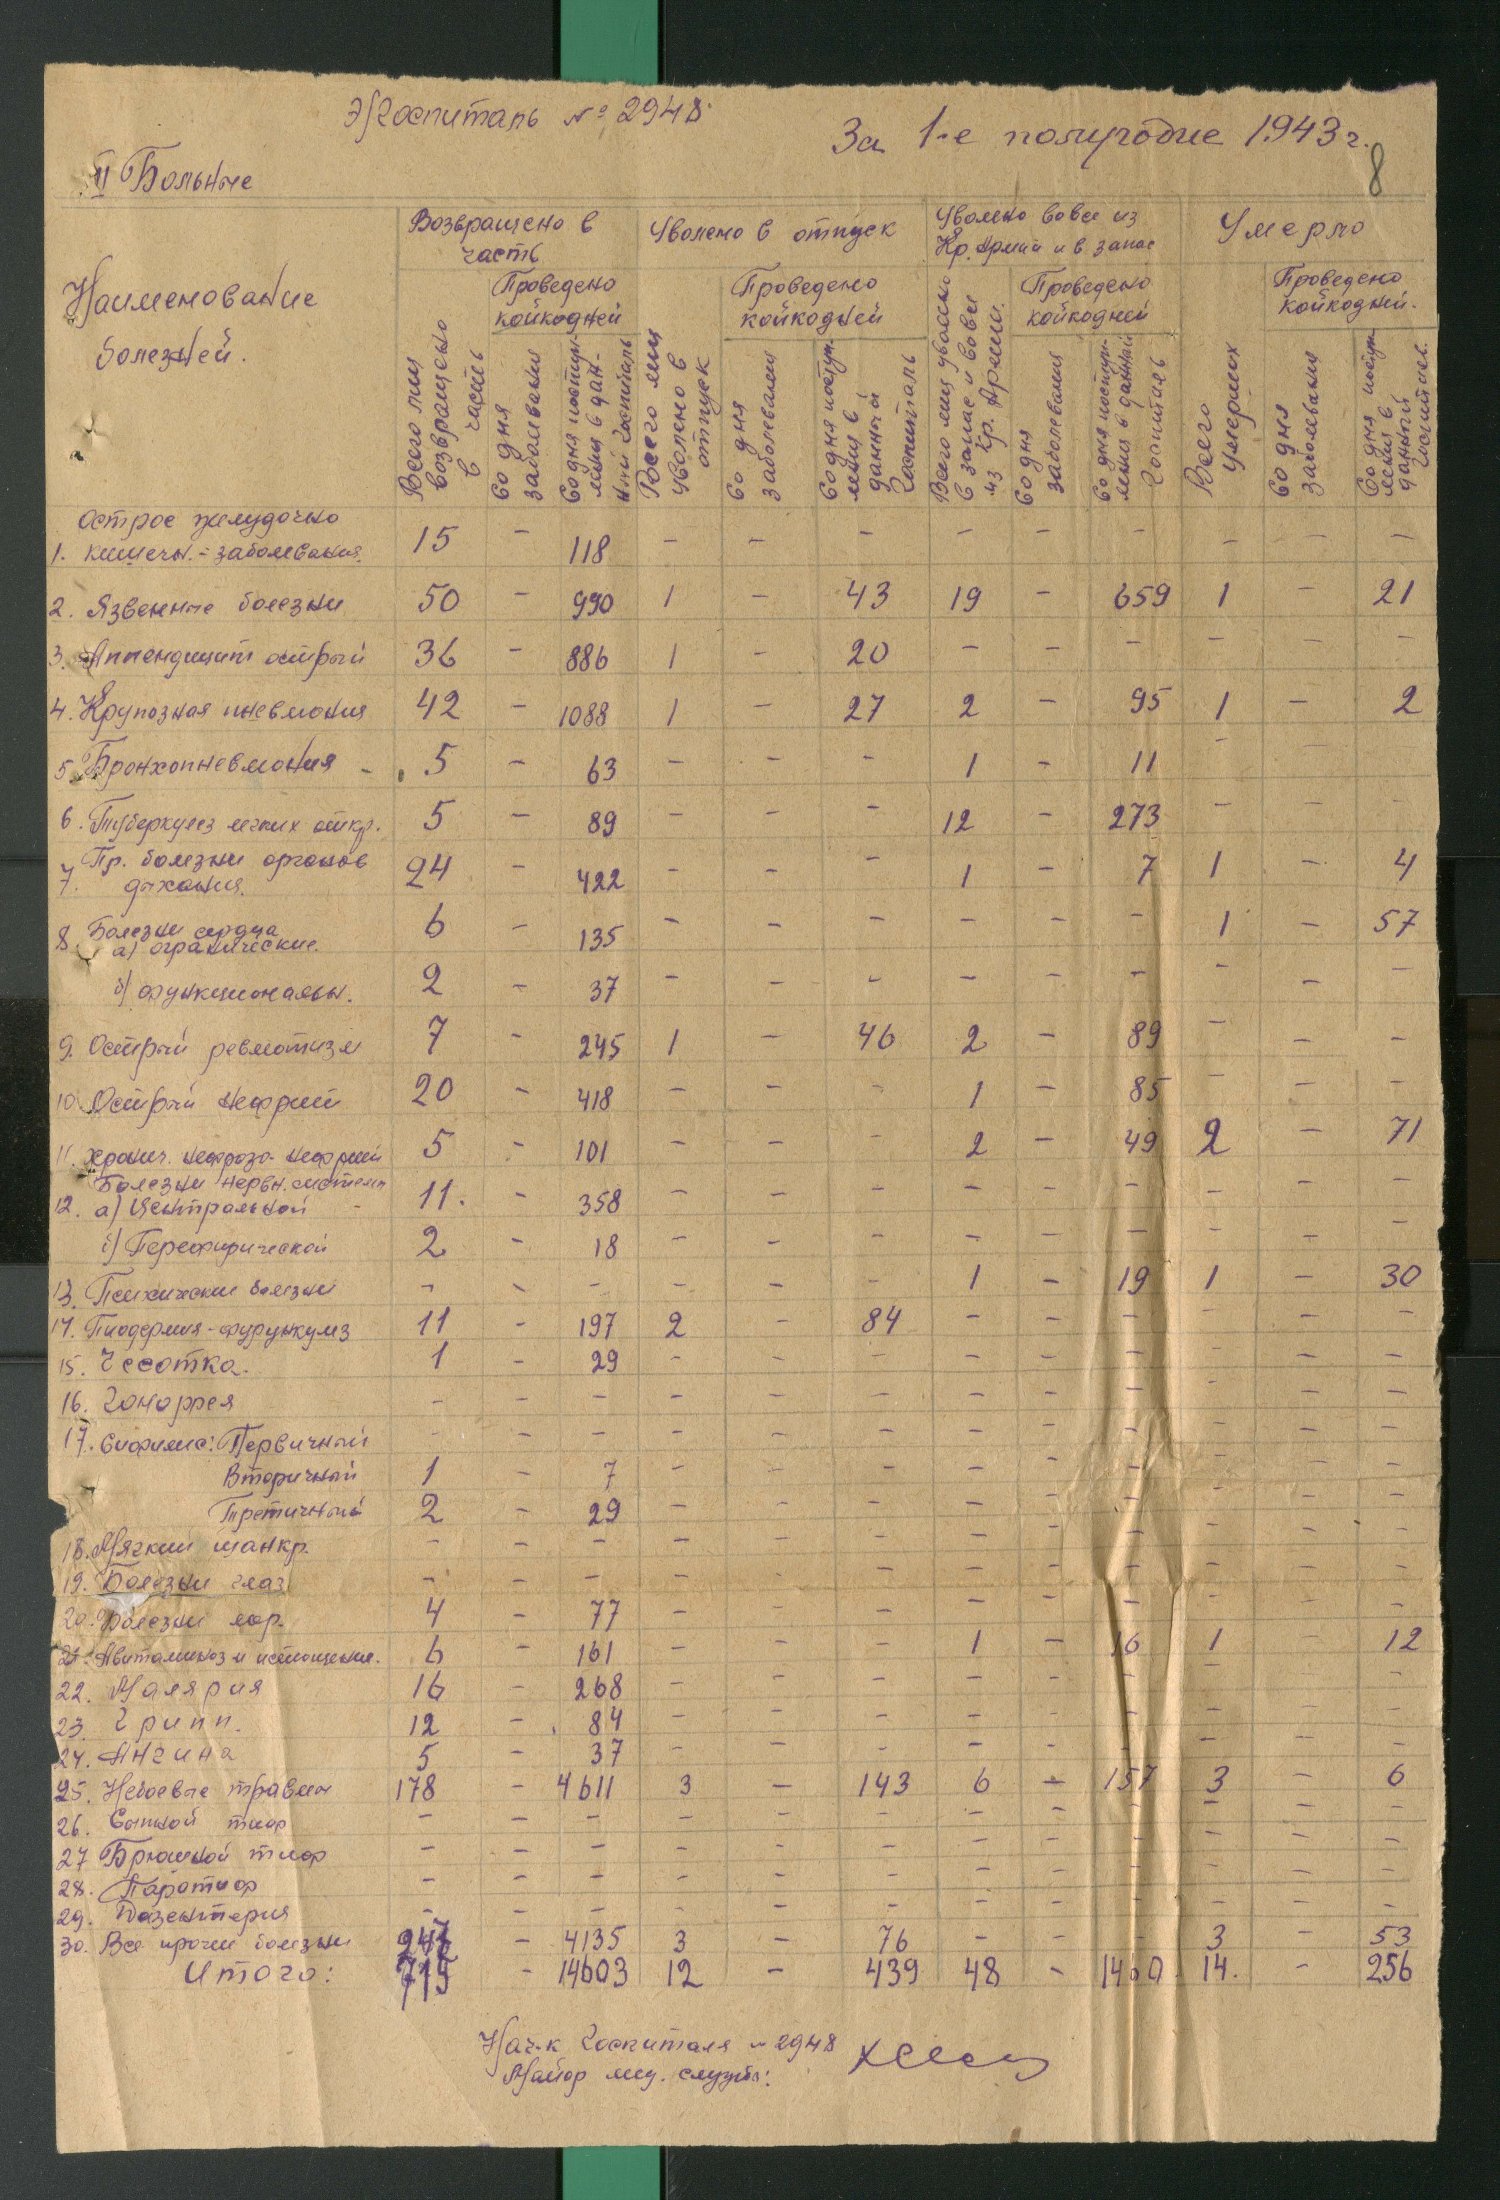 Э/Госпиталь № 2948
За 1-е полугодие 1943 г.
8
II Больные
Наименование болезней.
Возвращено в часть
Уволено в отпуск
Уволено вовсе из Кр. Армии и в запас
Умерло
Проведено койкодней
Проведено койкодней
Проведено койкодней
Проведено койкодней.
Всего лиц возвращено в часть
Со дня заболевания
Со дня поступления в данный госпиталь
Всего лиц уволено в отпуск
Со дня заболевания
Со дня поступления в данный госпиталь
Всего лиц уволено в запас и вовсе из Кр. Армии.
Со дня заболевания
Со дня поступления в данный госпиталь
Всего умерших
Со дня заболевания
Со дня поступления в данный госпиталь.
Острое желудочно
1. кишечн. - заболевания. 15 - 118 - - - - - - - - -
2. Язвенные болезни 50 - 990 1 - 43 19 - 659 1 - 21
3. Аппендицит острый 36 - 886 1 - 20 - - - - - -
4. Крупозная пневмония 42 - 1088 1 - 27 2 - 95 1 - 2
5. Бронхопневмония - 5 - 63 - - - 1 - 11 - - -
6. Туберкулез легких откр. 5 - 89 - - - 12 - 273 - - -
Пр. болезни органов
7. дыхания. 24 - 422 - - - 1 - 7 1 - 4
8 Болезни сердца
а) огранические. 6 - 135 - - - - - - 1 - 57
б) функциональн. 2 - 37 - - - - - - - - -
9. Острый ревматизм 7 - 245 1 - 46 2 - 89 - - -
10. Острый нефрит 20 - 418 - - - 1 - 85 - - -
11. Хронич. нефрозо-нефрит 5 - 101 - - - 2 - 49 2 - 71
Болезни нервн. системы
12. а) Центральной 11. - 358 - - - - - - - - -
б) Перефирической 2 - 18 - - - - - - - - -
13. Психические болезни - - - - - - 1 - 19 1 - 30
14. Пиодермия-фурункулез 11 - 197 2 - 84 - - - - - -
15. Чесотка. 1 - 29 - - - - - - - - -
16. Гоноррея - - - - - - - - - - - -
17. Сифилис: Первичный - - - - - - - - - - - -
Вторичный 1 - 7 - - - - - - - - -
Третичный 2 - 29 - - - - - - - - -
18. Мягкий шанкр. - - - - - - - - - - - -
19. Болезни глаз - - - - - - - - - - - -
20. Болезни лор. 4 - 77 - - - - - - - - -
21. Авитаминоз и истощение. 6 - 161 - - - 1 - 16 1 - 12
22. Малярия 16 - 268 - - - - - - - - -
23. Грипп. 12 - 84 - - - - - - - - -
24. Ангина 5 - 37 - - - - - - - - -
25. Небоевые травмы 178 - 4611 3 - 143 6 - 157 3 - 6
26. Сыпной тиф - - - - - - - - - - - -
27 Брюшной тиф - - - - - - - - - - - -
28. Паратиф - - - - - - - - - - - -
29. Дизентерия - - - - - - - - - - - -
30. Все прочие болезни 247 - 4135 3 - 76 - - - 3 - 53
Итого: 715 - 14603 12 - 439 48 - 1460 14. - 256
Нач-к Госпиталя № 2948
Майор мед. службы: